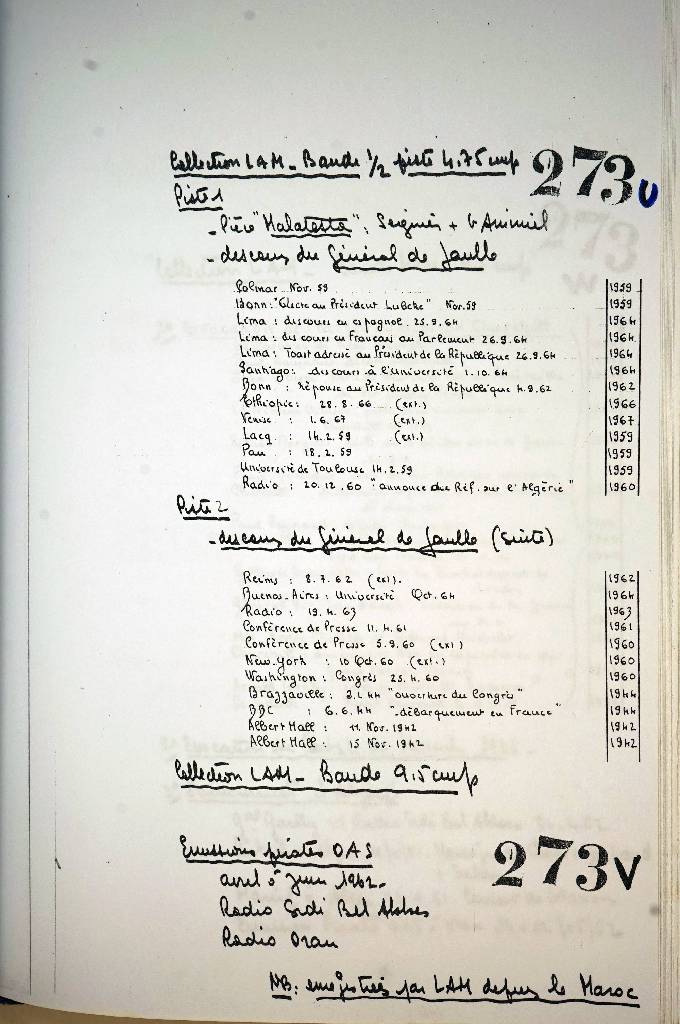 Collection LAM - Bande 1/2 piste 4.75 cm/s 273 U
Piste 1
- Pièce "Malatesta":
- discours du Général de Gaulle
Colmar Nov. 59 1959
Bonn: au Président Lubcke" Nov. 59 1959
Lima: discours en espagnol 25.9.64 1964
Lima: discours en Français au Parlement 26.9.64 1964
Lima: Toast adressé au Président de la République 26.9.64 1964
Santiago: discours à l'université 1.10.64 1964
Bonn : réponse au Président de la République 4.9.62 1962
Ethiopie: 28.8.66 (ext.) 1966
Venise : 1.6.67 (ext.) 1967
Lacq : 14.2.59 (ext.) 1959
Pau : 18.2.59 1959
Université de Toulouse 14.2.59 1959
Radio : 20.12.60 "annonce du Réf. sur l'Algérie" 1960
Piste 2
- discours du Général de Gaulle (suite)
Reims : 8.7.62 (ext). 1962
Buenos-Aires: Université Oct. 64 1964
Radio : 19.4.63 1963
Conférence de Presse 11.4.61 1961
Conférence de Presse 5.9.60 (ext) 1960
New-York : 10 Oct. 60 (ext.) 1960
Washington: Congrès 25.4.60 1960
Brazzaville: "ouverture du Congrès" 1944
BBC : 6.6.44 "débarquement en France" 1944
Albert Hall: 11 Nov. 1942 1942
Albert Hall: 15 Nov. 1942 1942
Collection LAM - Bande 9.5 cm/s
273 V
Emissions pirates OAS
avril à Juin 1962-
Radio Sidi Bel Abbes
Radio Oran
NB: enregistrées par LAM depuis le Maroc